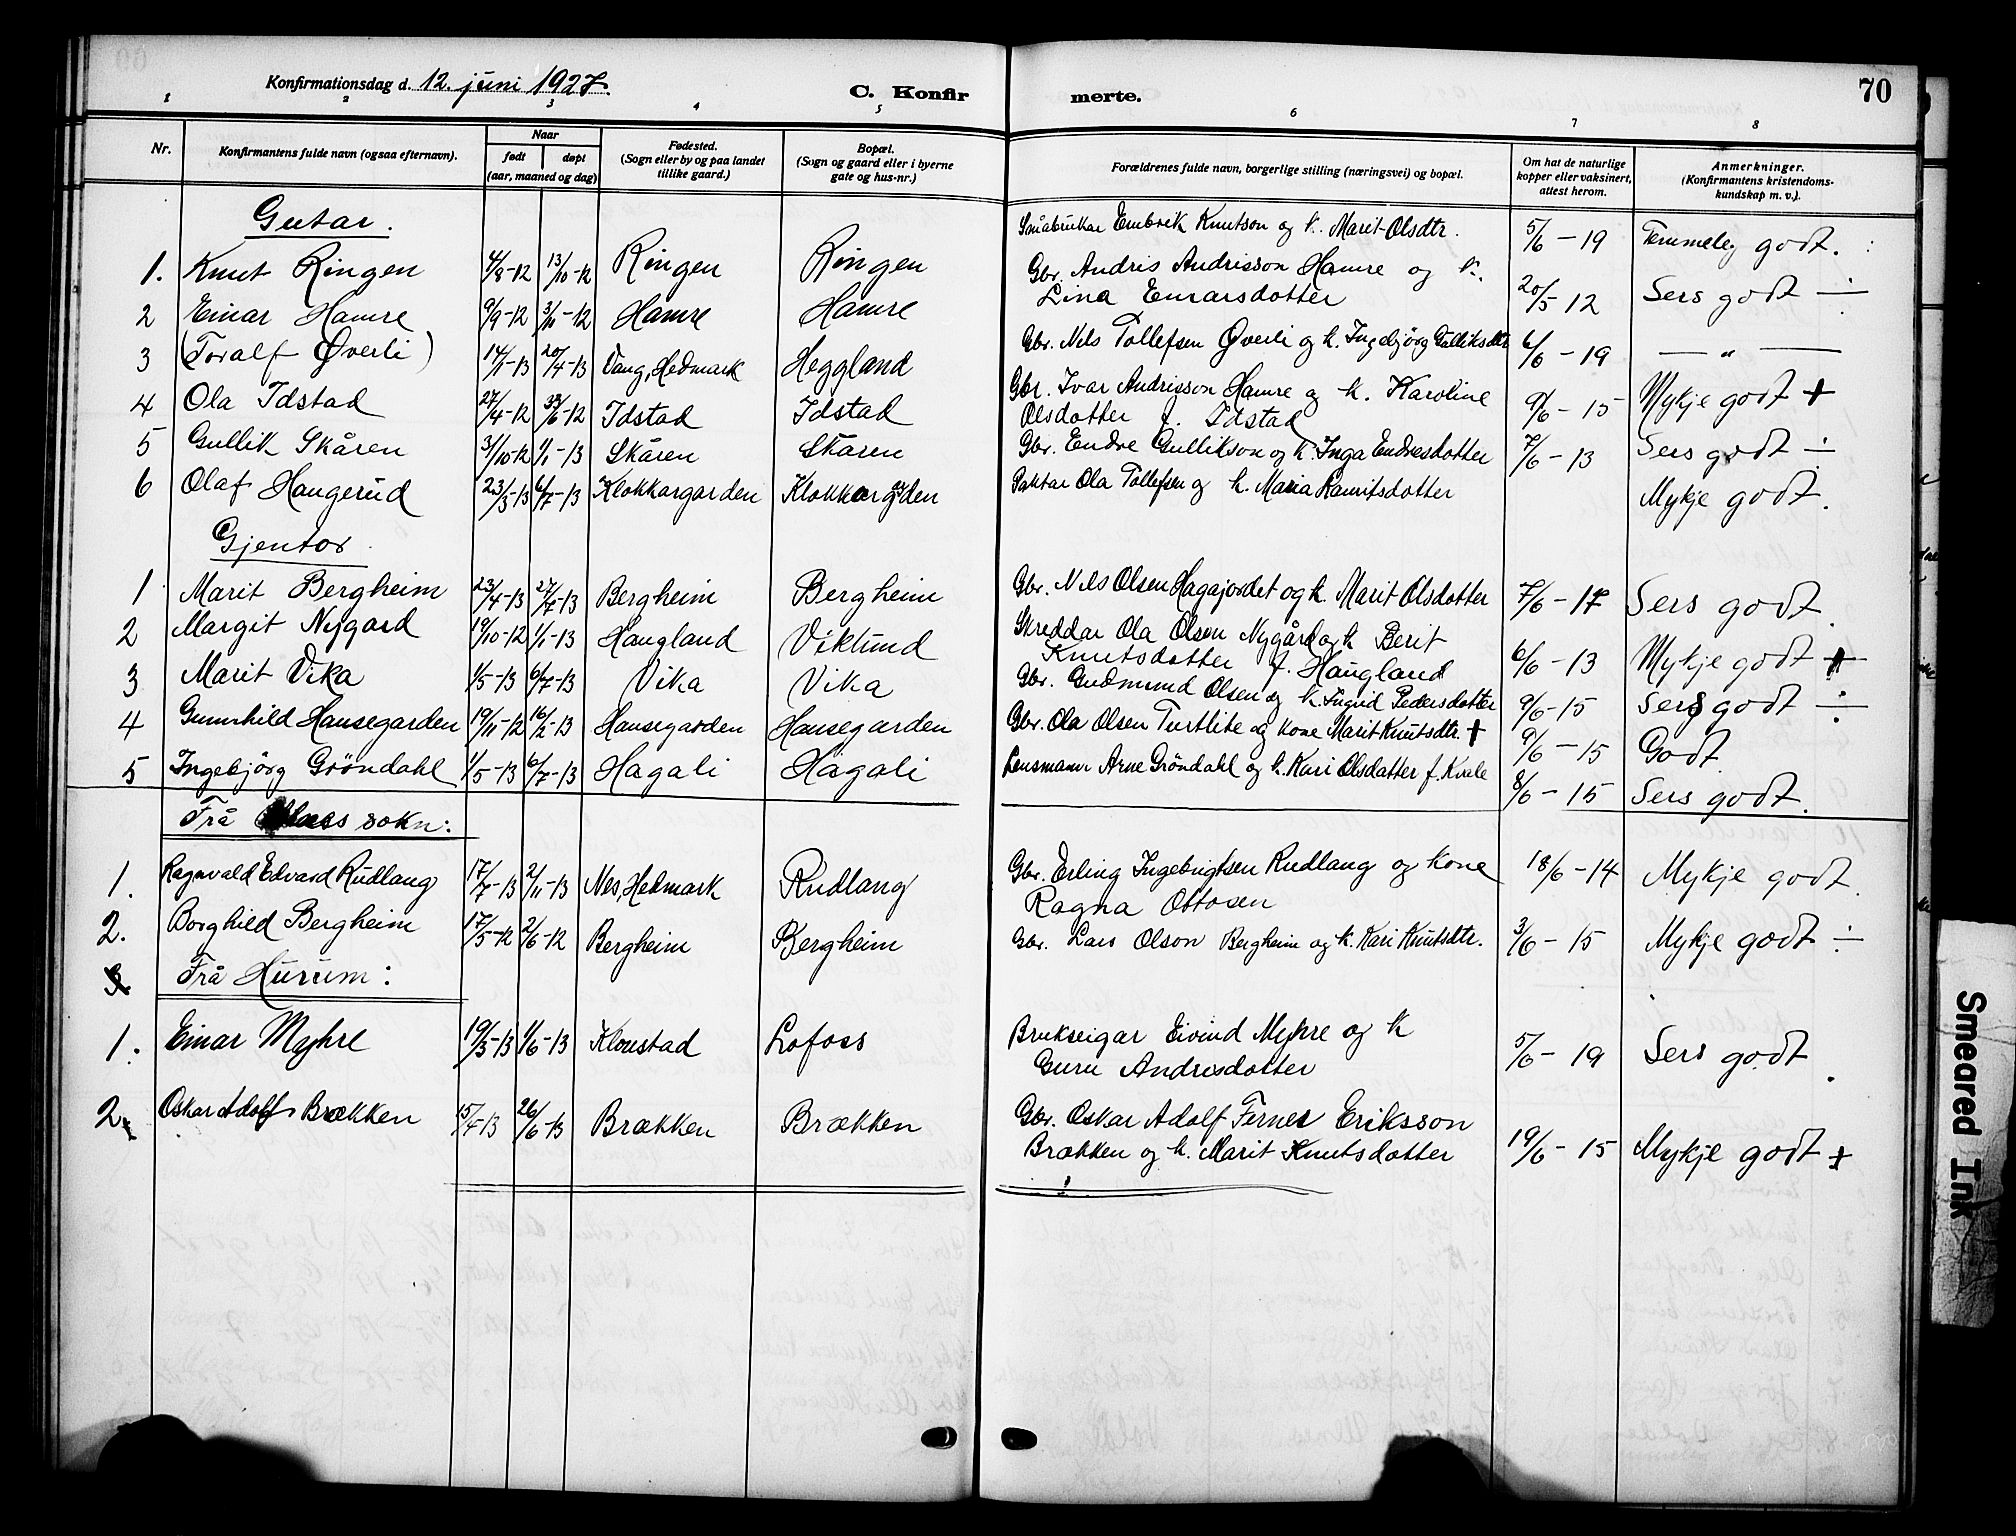 Konfirmationsdag d. 12. juni 1927.
C. Konfirmerte.
70
1 2 3 4 5 6 7 8
Nr. Konfirmantens fulde navn (ogsaa efternavn). Naar født døpt (aar, maaned og dag) Fødested. (Sogn eller by og paa landet tillike gaard.) Bopæl. (Sogn og gaard eller i byerne gate og hus-nr.) Forældrenes fulde navn, borgerlige stilling (næringsvei) og bopæl. Om hat de naturlige kopper eller vaksinert, attest herom. Anmerkninger. (Konfirmantens kristendoms-kundskap m. v.).
Gutar.
1. Knut Ringen 4/8-12 13/10-12 Ringen Ringen Småbrukar Embrik Knutson og k. Marit Olsdtr. 5/6-19 Temmeleg godt.
2 Einar Hamre 9/9-12 3/11-12 Hamre Hamre Gbr. Andris Andrisson Hamre og k.
Lina Einarsdotter 20/5 12 Sers godt ÷
3 (Toralf Øverli) 14/1-13 20/4-13 Vang, Hedmark Heggland Gbr. Nils Tollefsen Øverli og k. Ingebjörg Gulliksdtr 6/6-19 — " —
4 Ola Idstad 27/4-12 /6-12 Idstad Idstad Gbr. Ivar Andrisson Hamre og k. Karoline
Olsdotter f. Idstad 9/6-15 Mykje godt +
5 Gullik Skåren 3/10-12 1/1-13 Skåren Skåren Gbr. Endre Gullikson og k. Inga Endresdotter 7/6-13 Sers godt ÷
6 Olaf Haugerud 23/3-13 6/7-13 Klokkargarden Klokkargarden Paktar Ola Tollefsen og k. Maria Lauritsdotter Mykje godt.
Gjentor.
1 Marit Bergheim 23/4-13 27/7-13 Bergheim Bergheim Gbr. Nils Olsen Hagajordet og k. Marit Olsdotter 7/6-17 Sers godt.
2 Margit Nygard 19/10-12 1/1-13 Haugland Viklund Skreddar Ola Olsen Nygård og k Berit
Knutsdotter f. Haugland 6/6-13 Mykje godt +
3 Marit Vika 1/5-13 6/7-13 Vika Vika Gbr. Gudmund Olsen og k. Ingrid Pedersdotter 9/6-15 Sers godt ÷
4 Gunnhild Hansegarden 19/11-12 16/2-13 Hansegarden Hansegarden Gbr. Ola Olsen Turtlite og kone Marit Knutsdtr. + 9/6-15 Godt.
5 Ingebjörg Gröndahl 1/5-13 6/7-13 Hagali Hagali Lensmann Arne Gröndahl og k. Kari Olsdatter f. Kvele 8/6-15 Sers godt.
Frå Nes sokn:
1. Ragnvald Edvard Rudlang 17/7-13 2/11-13 Nes, Hedmark Rudlang Gbr. Erling Ingebrigtsen Rudlang og kone
Ragna Ottosen 18/6-14 Mykje godt.
2. Borghild Bergheim 17/5-12 2/6-12 Bergheim Bergheim Gbr. Lars Olson Bergheim og k. Kari Knutsdtr. 3/6-15 Mykje godt ÷
3 Frå Hurum:
1. Einar Myhre 19/3-13 1/6-13 Klonstad Lofoss Brukseigar Eivind Myhre og k
Guru Andrisdotter 5/6-19 Sers godt.
2. Oskar Adolf Brækken 15/4-13 26/6-13 Brækken Brækken Gbr. Oskar Adolf Ferner Eriksson
Brækken og k. Marit Knutsdotter 19/6-15 Mykje godt +
Smeared Ink